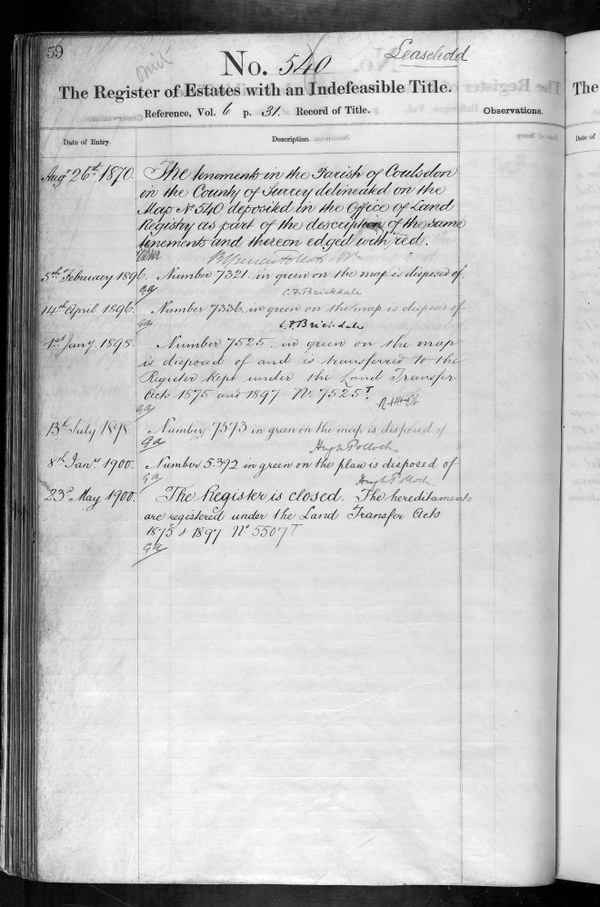 59
No. 540
Leasehold
The Register of Estates with an Indefeasible Title.
Reference, Vol. 6 p. 31. Record of Title.
Observations.
Date of Entry.
Description
Augt 26th 1870.
The tenements in the Parish of Coulsdon
in the County of Surrey delineated on the
Map No 540 deposited in the Office of Land
Registry as part of the description of the same
tenements and thereon edged with red.
5th February 1896.
Number 7321. in green on the map is disposed of.
C.F. Brickdale
14th April 1896.
Number 7336, in green on the map is disposed of
C.F. Brickdale
1st Jany. 1898.
Number 7525 in green on the map
is disposed of and is transferred to the
Register kept under the Land Transfer
Acts 1875 and 1897 No. 7525T.
13th July 1898.
Number 7573 in green on the map is disposed of
Hugh Pollock
8th Jany 1900.
Number 5392 in green on the plan is disposed of
Hugh Pollock
23rd May 1900.
The Register is closed. The hereditaments
are registered under the Land Transfer Acts
1875 & 1897 No 5507T
The
Date of